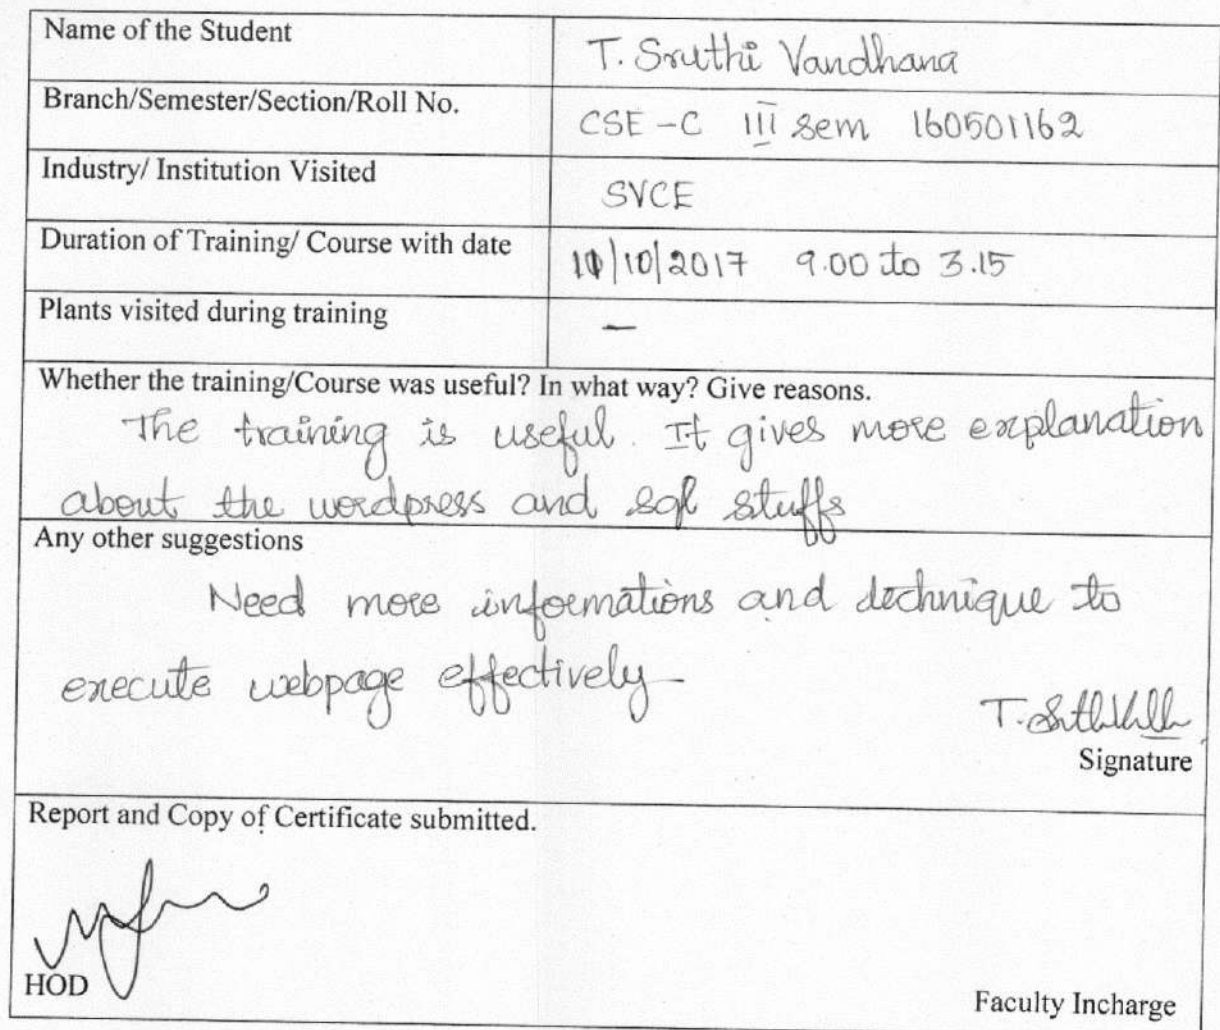 Name of the Student
T. Sruthi Vandhana
Branch/Semester/Section/Roll No.
CSE - C III sem 160501162
Industry/ Institution Visited
SVCE
Duration of Training/ Course with date
/10/2017 9.00 to 3.15
Plants visited during training
—
Whether the training/Course was useful? In what way? Give reasons.
The training is useful. It gives more explanation
about the wordpress and sql stuffs
Any other suggestions
Need more informations and technique to
execute webpage effectively
T.
Signature
Report and Copy of Certificate submitted.
HOD
Faculty Incharge